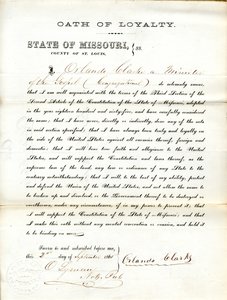 OATH OF LOYALTY.
STATE OF MISSOURI, } ss.
COUNTY OF ST. LOUIS,
I Orlando Clark a Minister
of the Gospel (Congregational) do solemnly swear,
that I am well acquainted with the terms of the Third Section of the
Second Article of the Constitution of the State of Missouri, adopted
in the year eighteen hundred and sixty-five, and have carefully considered the
same; that I have never, directly or indirectly, done any of the acts
in said section specified; that I have always been truly and loyally on
the side of the United States against all enemies thereof, foreign and
domestic; that I will bear true faith and allegiance to the United
States, and will support the Constitution and laws thereof, as the
supreme law of the land, any law or ordinance of any State to the
contrary notwithstanding; that I will, to the best of my ability, protect
and defend the Union of the United States, and not allow the same
to be broken up and dissolved, or the Government thereof to be destroyed or
overthrown, under any circumstances, if in my power to prevent it; that
I will support the Constitution of the State of Missouri; and that I
make this oath without any mental reservation or evasion, and hold it
to be binding on me.
Sworn to and subscribed before me,
this 2d day of September 186
Orlando Clark
Not. Pub